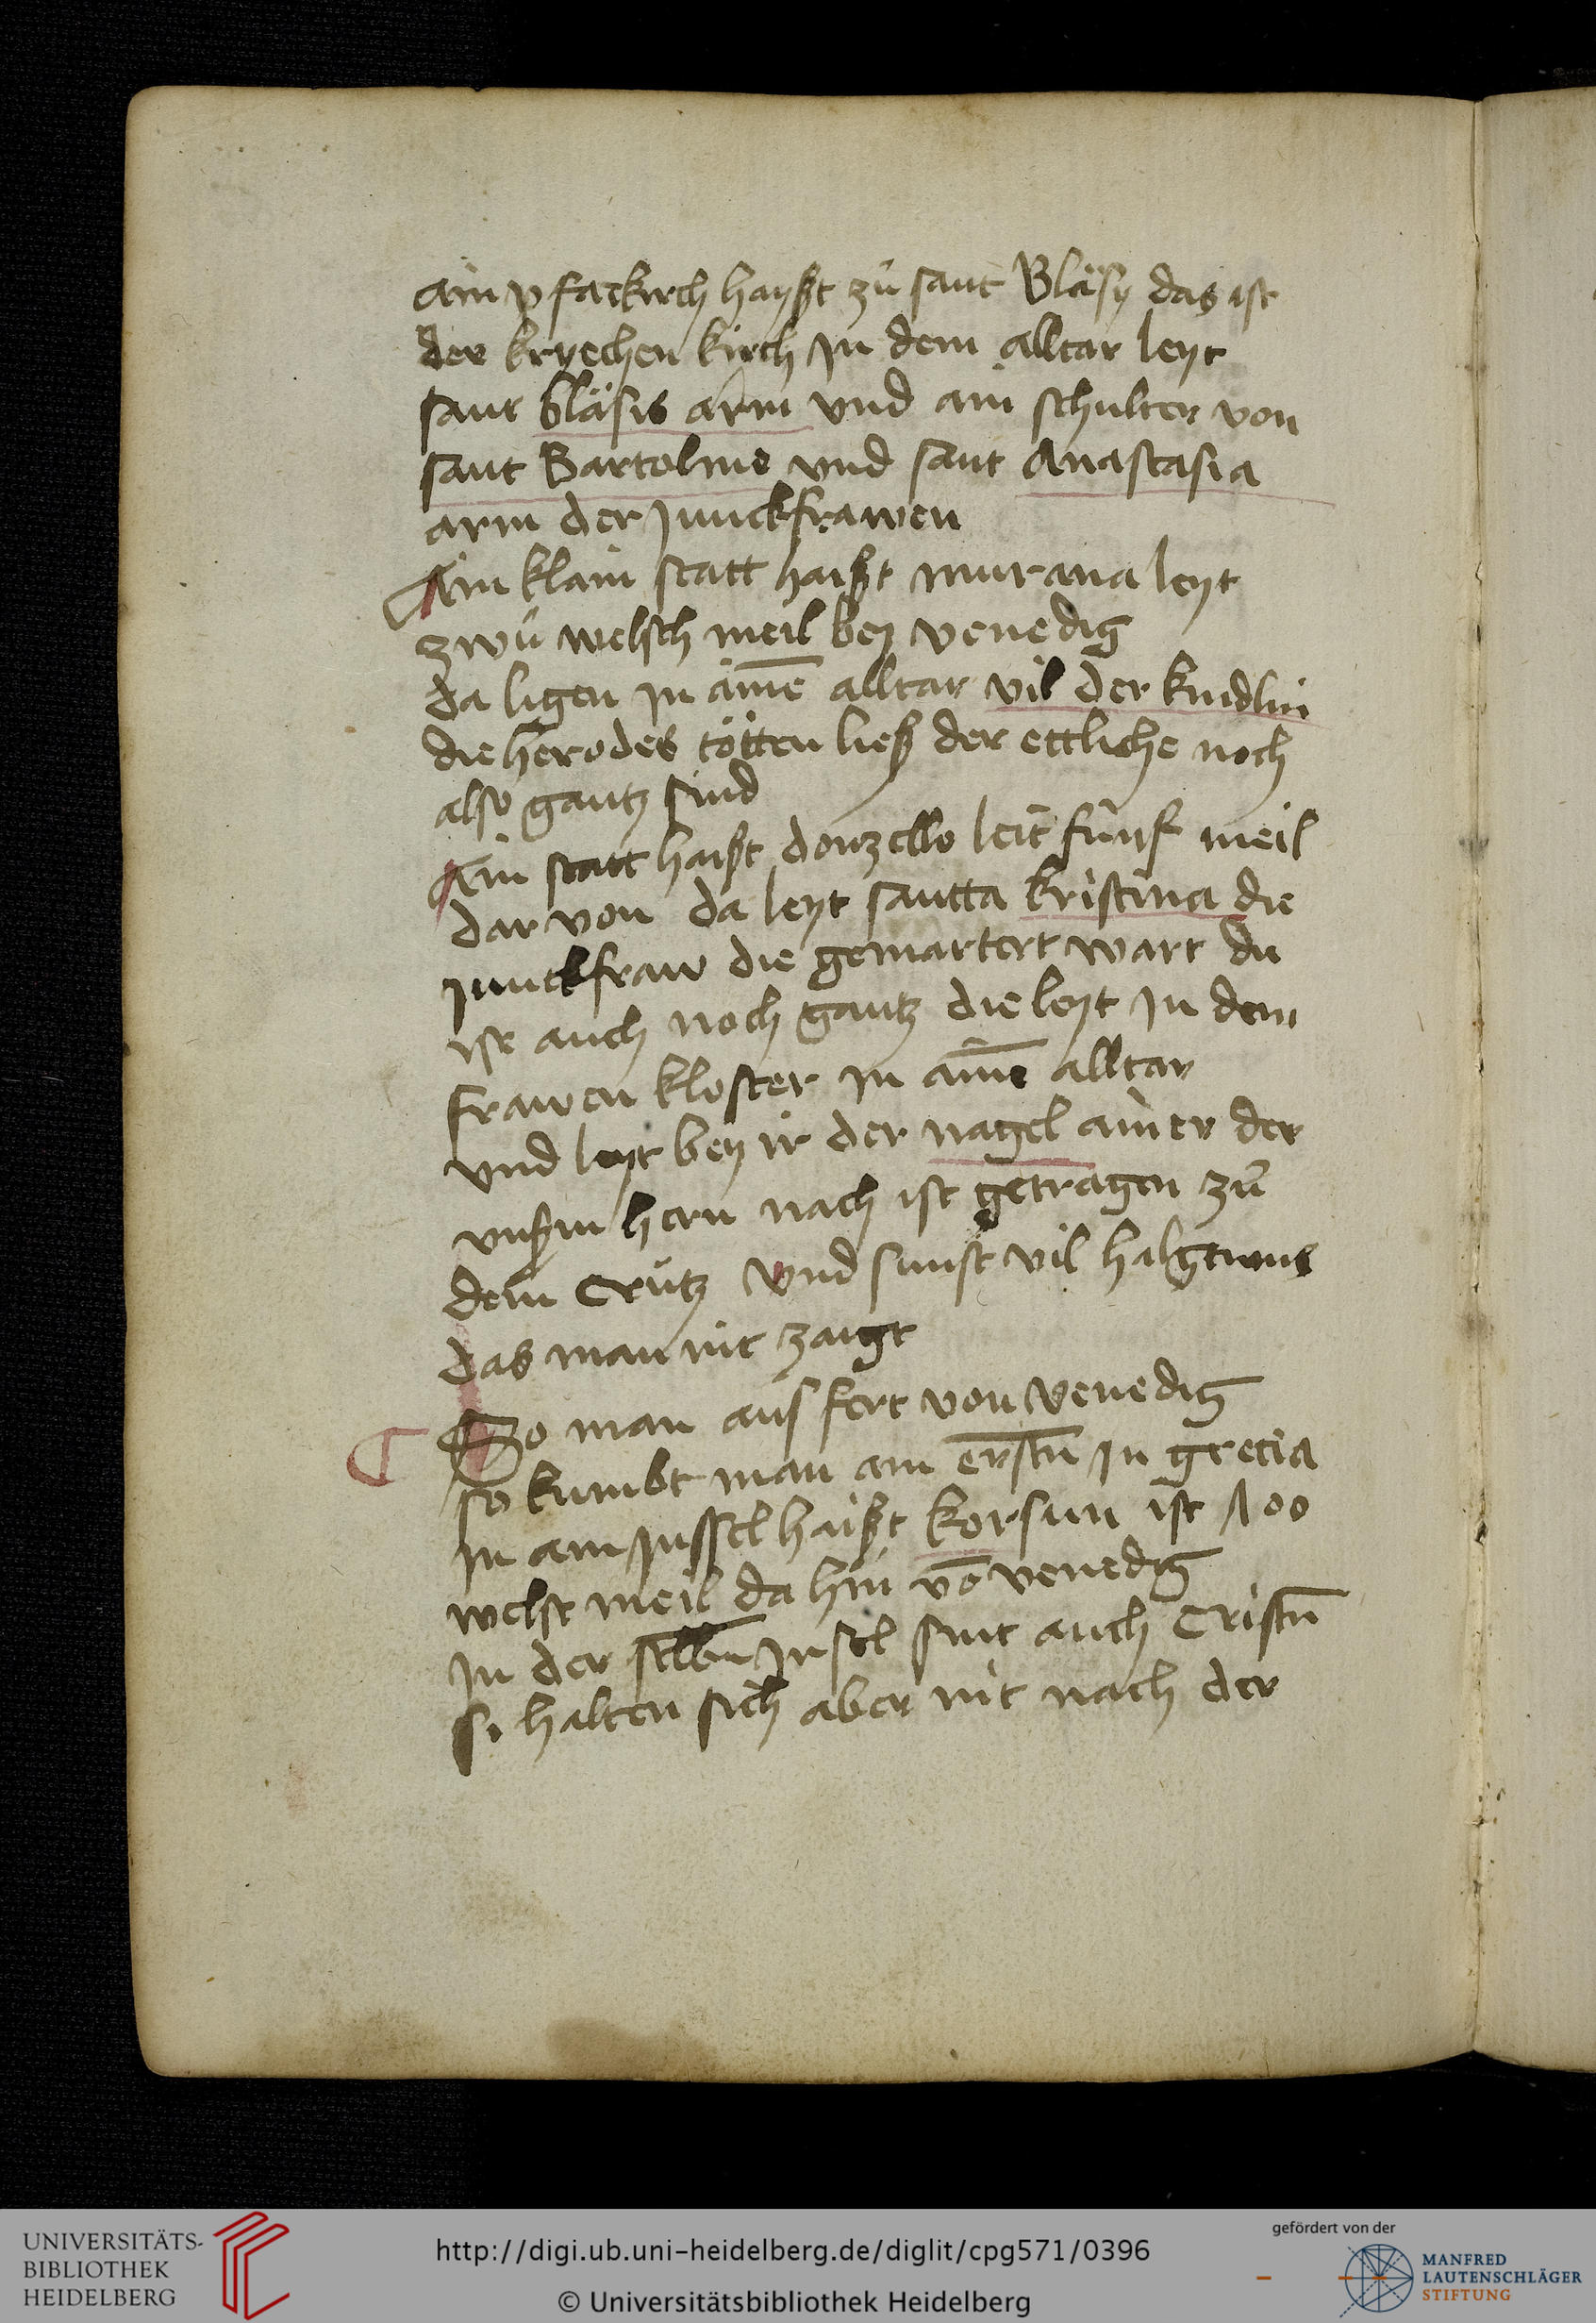 ain pfarkirch hayßt zů sant Bläsy das ist
der kryechen kirch jn dem alltar leyt
sant bläsis arm vnd ain schulter von
sant Bartolme vnd sant Anastasia
arm der junckfrawen
Ain klain statt haißt murana leyt
zwů welsch meil bey venedig
da ligen jn aīme alltar vil der kindlin
die herodes tötten ließ der ettliche noch
also gantz sind
Ain statt haißt donzello leit fünf meil
dar von da leyt santta kristina die
junckfraw die gemartert wart du
ist auch noch gantz die leyt jn dem
frawen kloster jn aīme alltar
vnd leyt bey ir der nagel ainer der
vnßm hern nach ist getragen zů
dem Crütz vnd sunst vil halgtums
das man nit zaigt
So man aus fert von venedig
so kumbt man am erstn̄ jn grecia
jn ain jnssel haißt korfun ist 700
welst meil da hin vō venedig
jn der selbn̄ jnsel sint auch Cristn̄
si halten sich aber nit nach der
UNIVERSITÄTS-
BIBLIOTHEK
HEIDELBERG
http://digi.ub.uni-heidelberg.de/diglit/cpg571/0396
© Universitätsbibliothek Heidelberg
gefördert von der
MANFRED
LAUTENSCHLÄGER
STIFTUNG